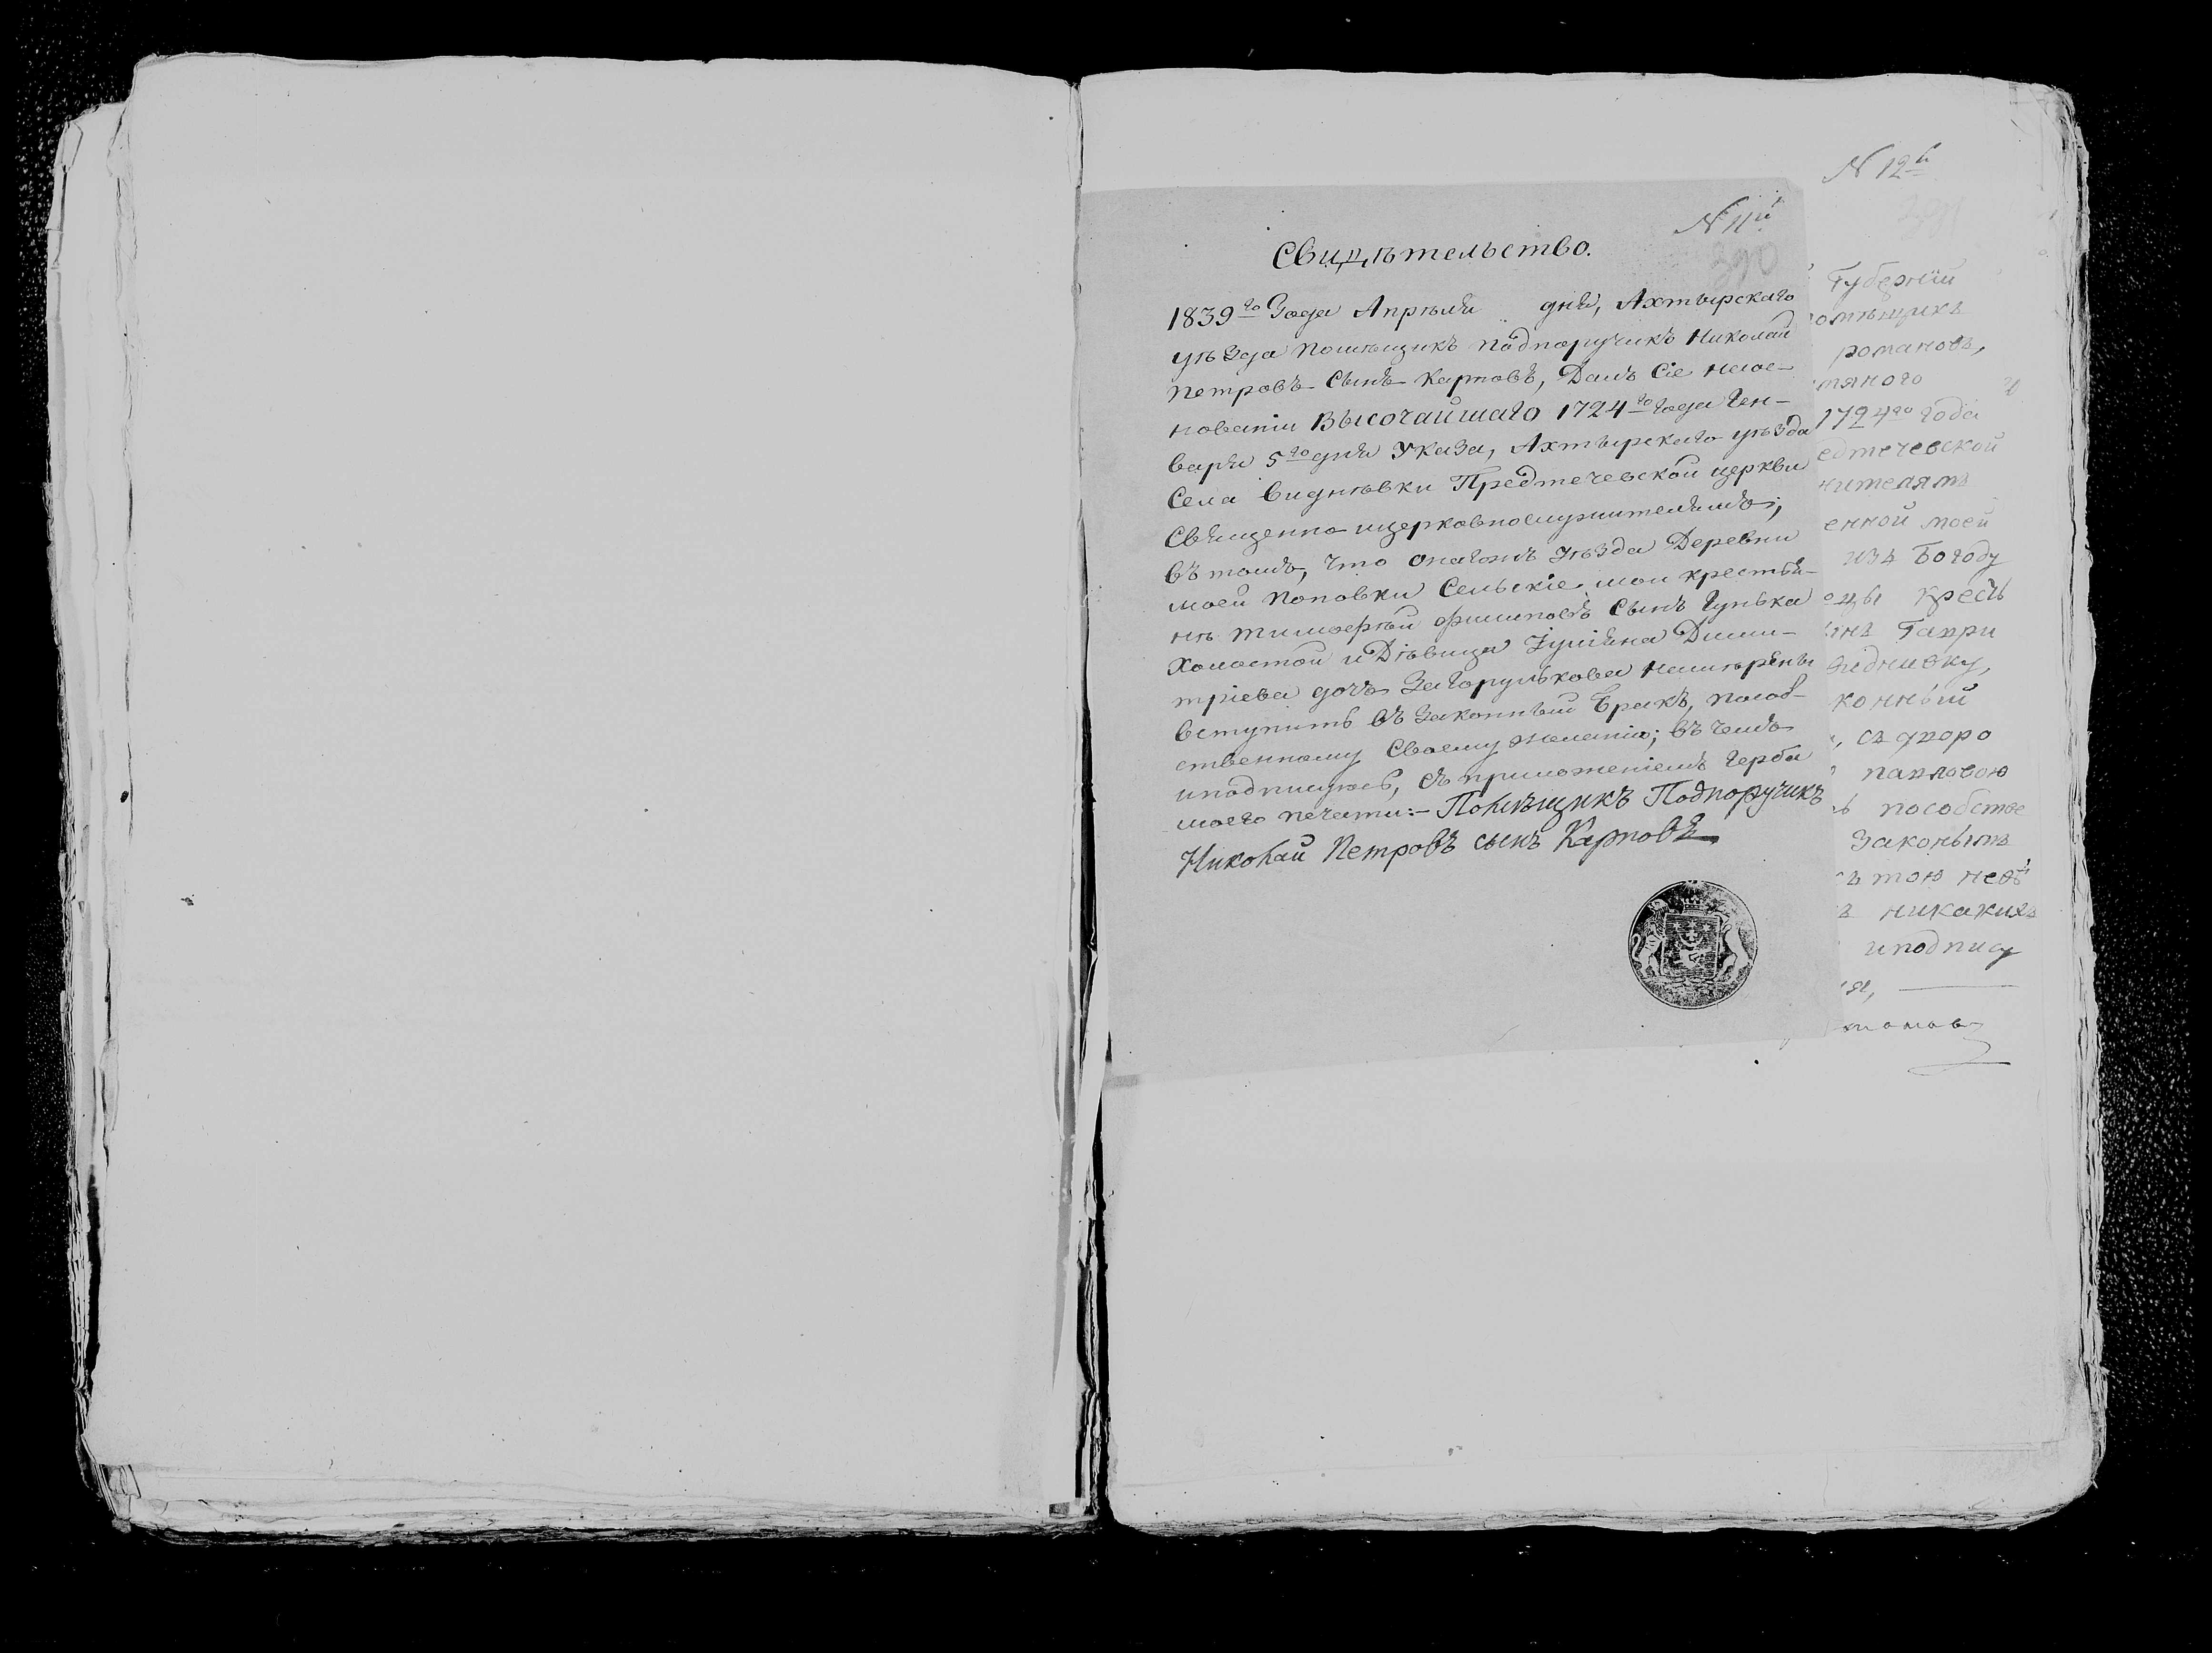 N 11й
390
Свидѣтельство.
1839го Года Апрѣля дня, Ахтырскаго
уѣзда помѣщикъ подпоручикъ Николай
Петровъ Сынъ Карповъ, Далъ Сіе наос-
нованіи Высочайшаго 1724го года Ген-
варя 5го дня Указа, Ахтырскаго уѣзда
Села Виднѣвки Предтечевской церкви
Священно ицерковнослужителямъ,
въ томъ, что онагожъ уѣзда Деревни
моей Поповки Сельскіе мои крестья-
нѣ Тимофѣй Филиповъ Сынъ Гунька
Холостой и Дѣвица Іуліяна Дими-
тріева дочь Загорулькова намѣрены
вступить въ Законный Бракъ, пособ-
ственному Своему желанію; въ чемъ
иподпишусь, съ приложеніемъ герба
моего печати:- Помѣщикъ Подпоручикъ
Николай Петровъ сынъ Карповъ
N 12й
391
Губерніи
омѣщикъ
романовъ,
тяного и
1724го года
едтечевской
жителямъ
енной моей
изъ Богоду
оцы кресть
інъ Гаври
Видниѳку,
конный
, съ дворо
павловою
ь пособстве
Законымъ
съ тою невѣ
ъ никакихъ
иподпису
ся,